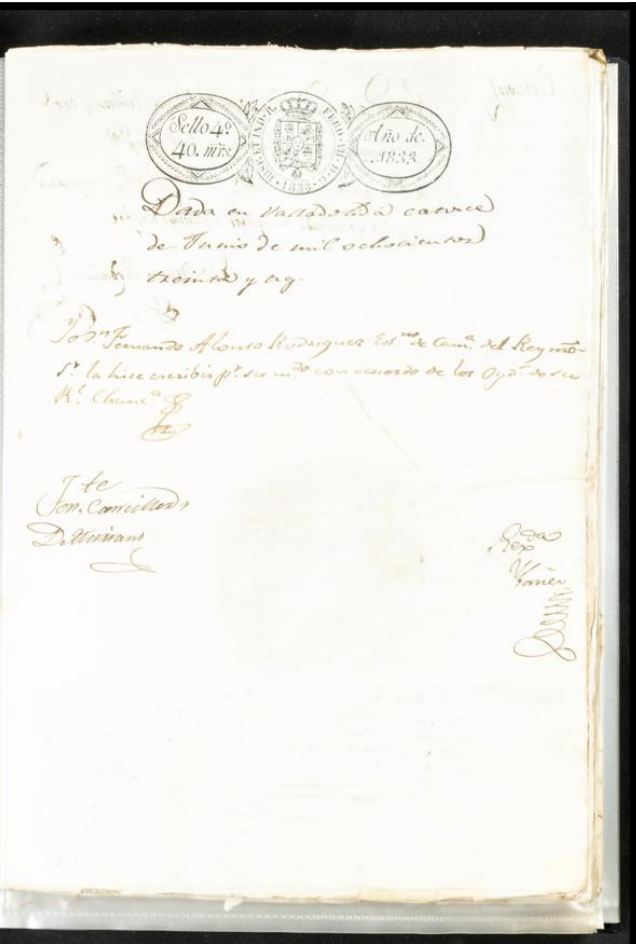 Sello 4º
40. mrs
HISP. ET IND. R. FERD. VII. D. G.
Año de
1833.
Dada en Valladolid a catorce
de Junio de mil ochocientos
treinta y
Yo Dn Fernando Alonso Rodriguez Esno de Camª del Rey nro
Sr la hice escribir pr su mdo con acuerdo de los Oydˢ de su
Rl Chancª
Tte
Canciller
Rexda